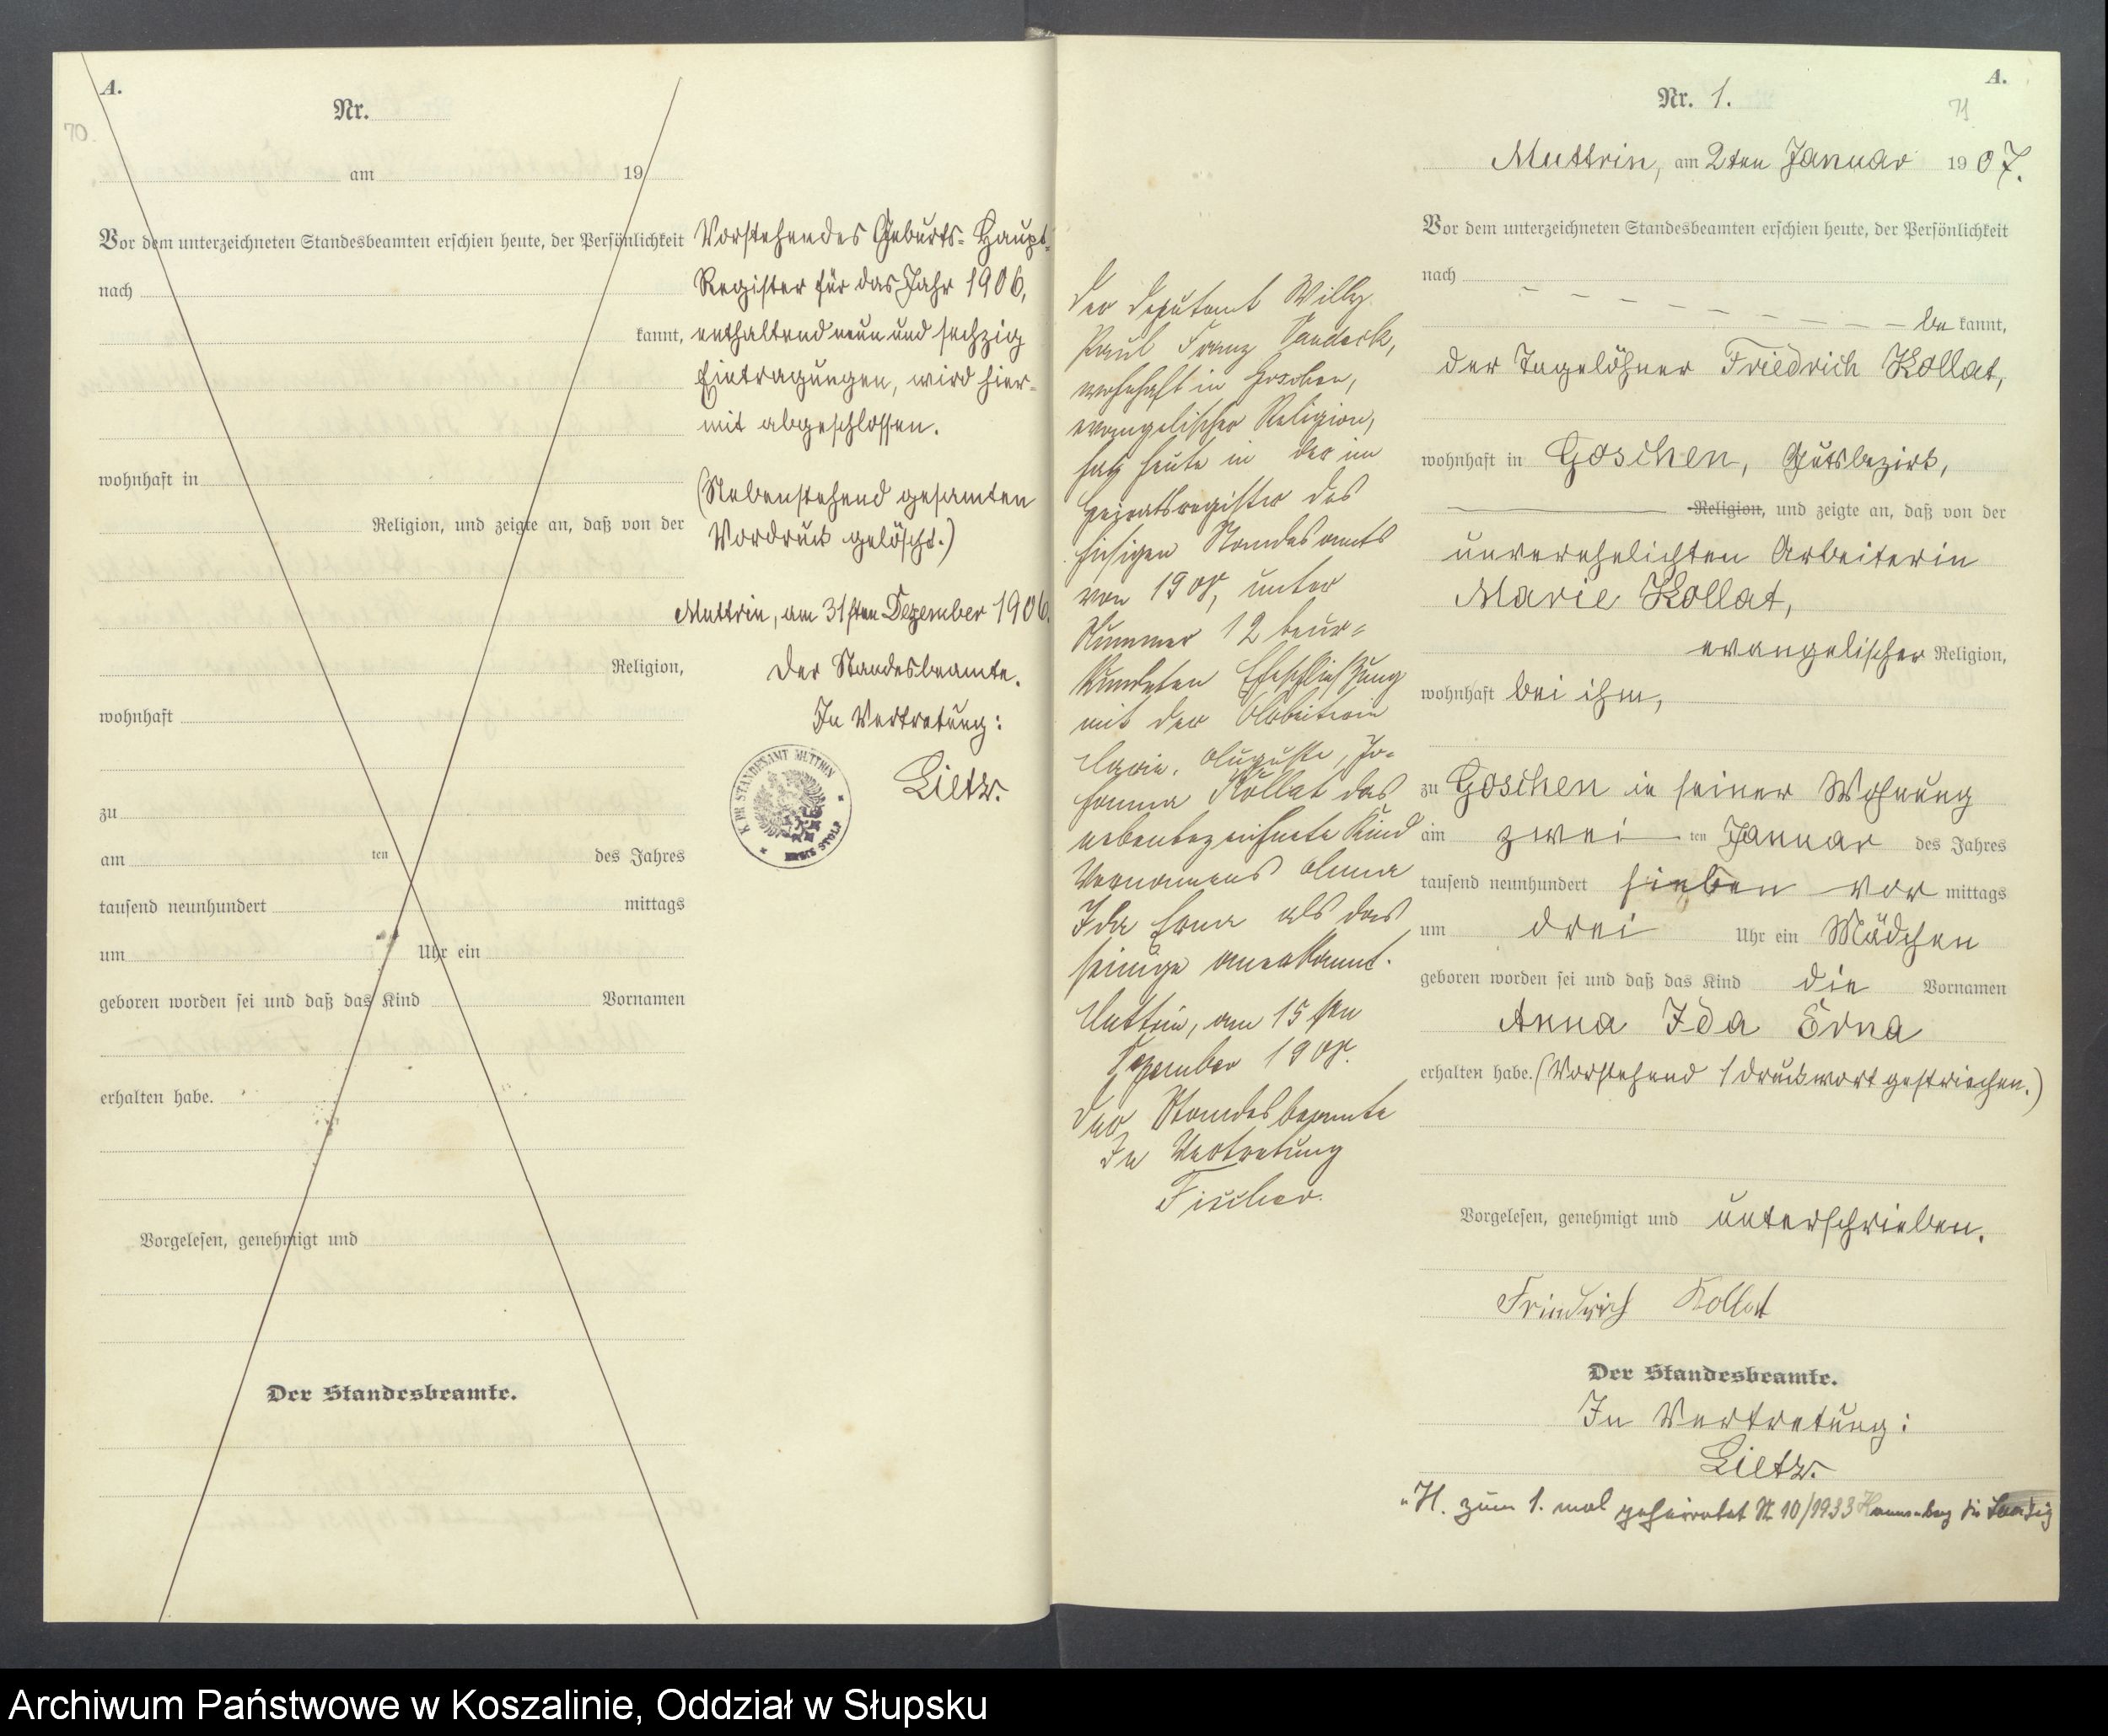 A.
Nr.
70.
am 19
Vor dem unterzeichneten Standesbeamten erschien heute, der Persönlichkeit
nach
kannt,
wohnhaft in
Religion, und zeigte an, daß von der
Religion,
wohnhaft
zu
am ten des Jahres
tausend neunhundert mittags
um Uhr ein
geboren worden sei und daß das Kind Vornamen
erhalten habe.
Vorgelesen, genehmigt und
Der Standesbeamte.
Vorstehendes Geburts-Haupt-
Register für das Jahr 1906,
enthaltend neun und sechzig
Eintragungen, wird hier-
mit abgeschlossen.
(Nebenstehend gesamten
Vordruck gelöscht.)
Muttrin, am 31sten Dezember 1906.
Der Standesbeamte.
In Vertretung:
Lietz.
K. PR. STANDESAMT MUTTRIN
KREIS STOLP
Der Deputant Willy
Paul Franz
wohnhaft in Goschen,
evangelischer Religion,
hat heute in der im
Heiratsregister des
hiesigen Standesamts
von 1908, unter
Nummer 12 beur-
kundeten Eheschließung
mit der Arbeiterin
Marie, Auguste, Jo-
hanna Kollat das
nebenbezeichnete Kind
Vornamens Anna
Ida Erna als das
seinige anerkannt.
Muttrin, am 15ten
Dezember 1908.
Der Standesbeamte
In Vertretung
Fischer.
A.
Nr. 1.
71
Muttrin, am 2ten Januar 1907.
Vor dem unterzeichneten Standesbeamten erschien heute, der Persönlichkeit
nach
be kannt,
der Tagelöhner Friedrich Kollat,
wohnhaft in Goschen, Gutsbezirk,
Religion, und zeigte an, daß von der
unverehelichten Arbeiterin
Marie Kollat,
evangelischer Religion,
wohnhaft bei ihm,
zu Goschen in seiner Wohnung
am zwei ten Januar des Jahres
tausend neunhundert sieben vor mittags
um drei Uhr ein Mädchen
geboren worden sei und daß das Kind die Vornamen
Anna Ida Erna
erhalten habe. (Vorstehend 1 Druckwort gestrichen.)
Vorgelesen, genehmigt und unterschrieben.
Friedrich Kollat
Der Standesbeamte.
In Vertretung:
Lietz.
zum 1. mal geheiratet N 10/1933
Archiwum Państwowe w Koszalinie, Oddział w Słupsku